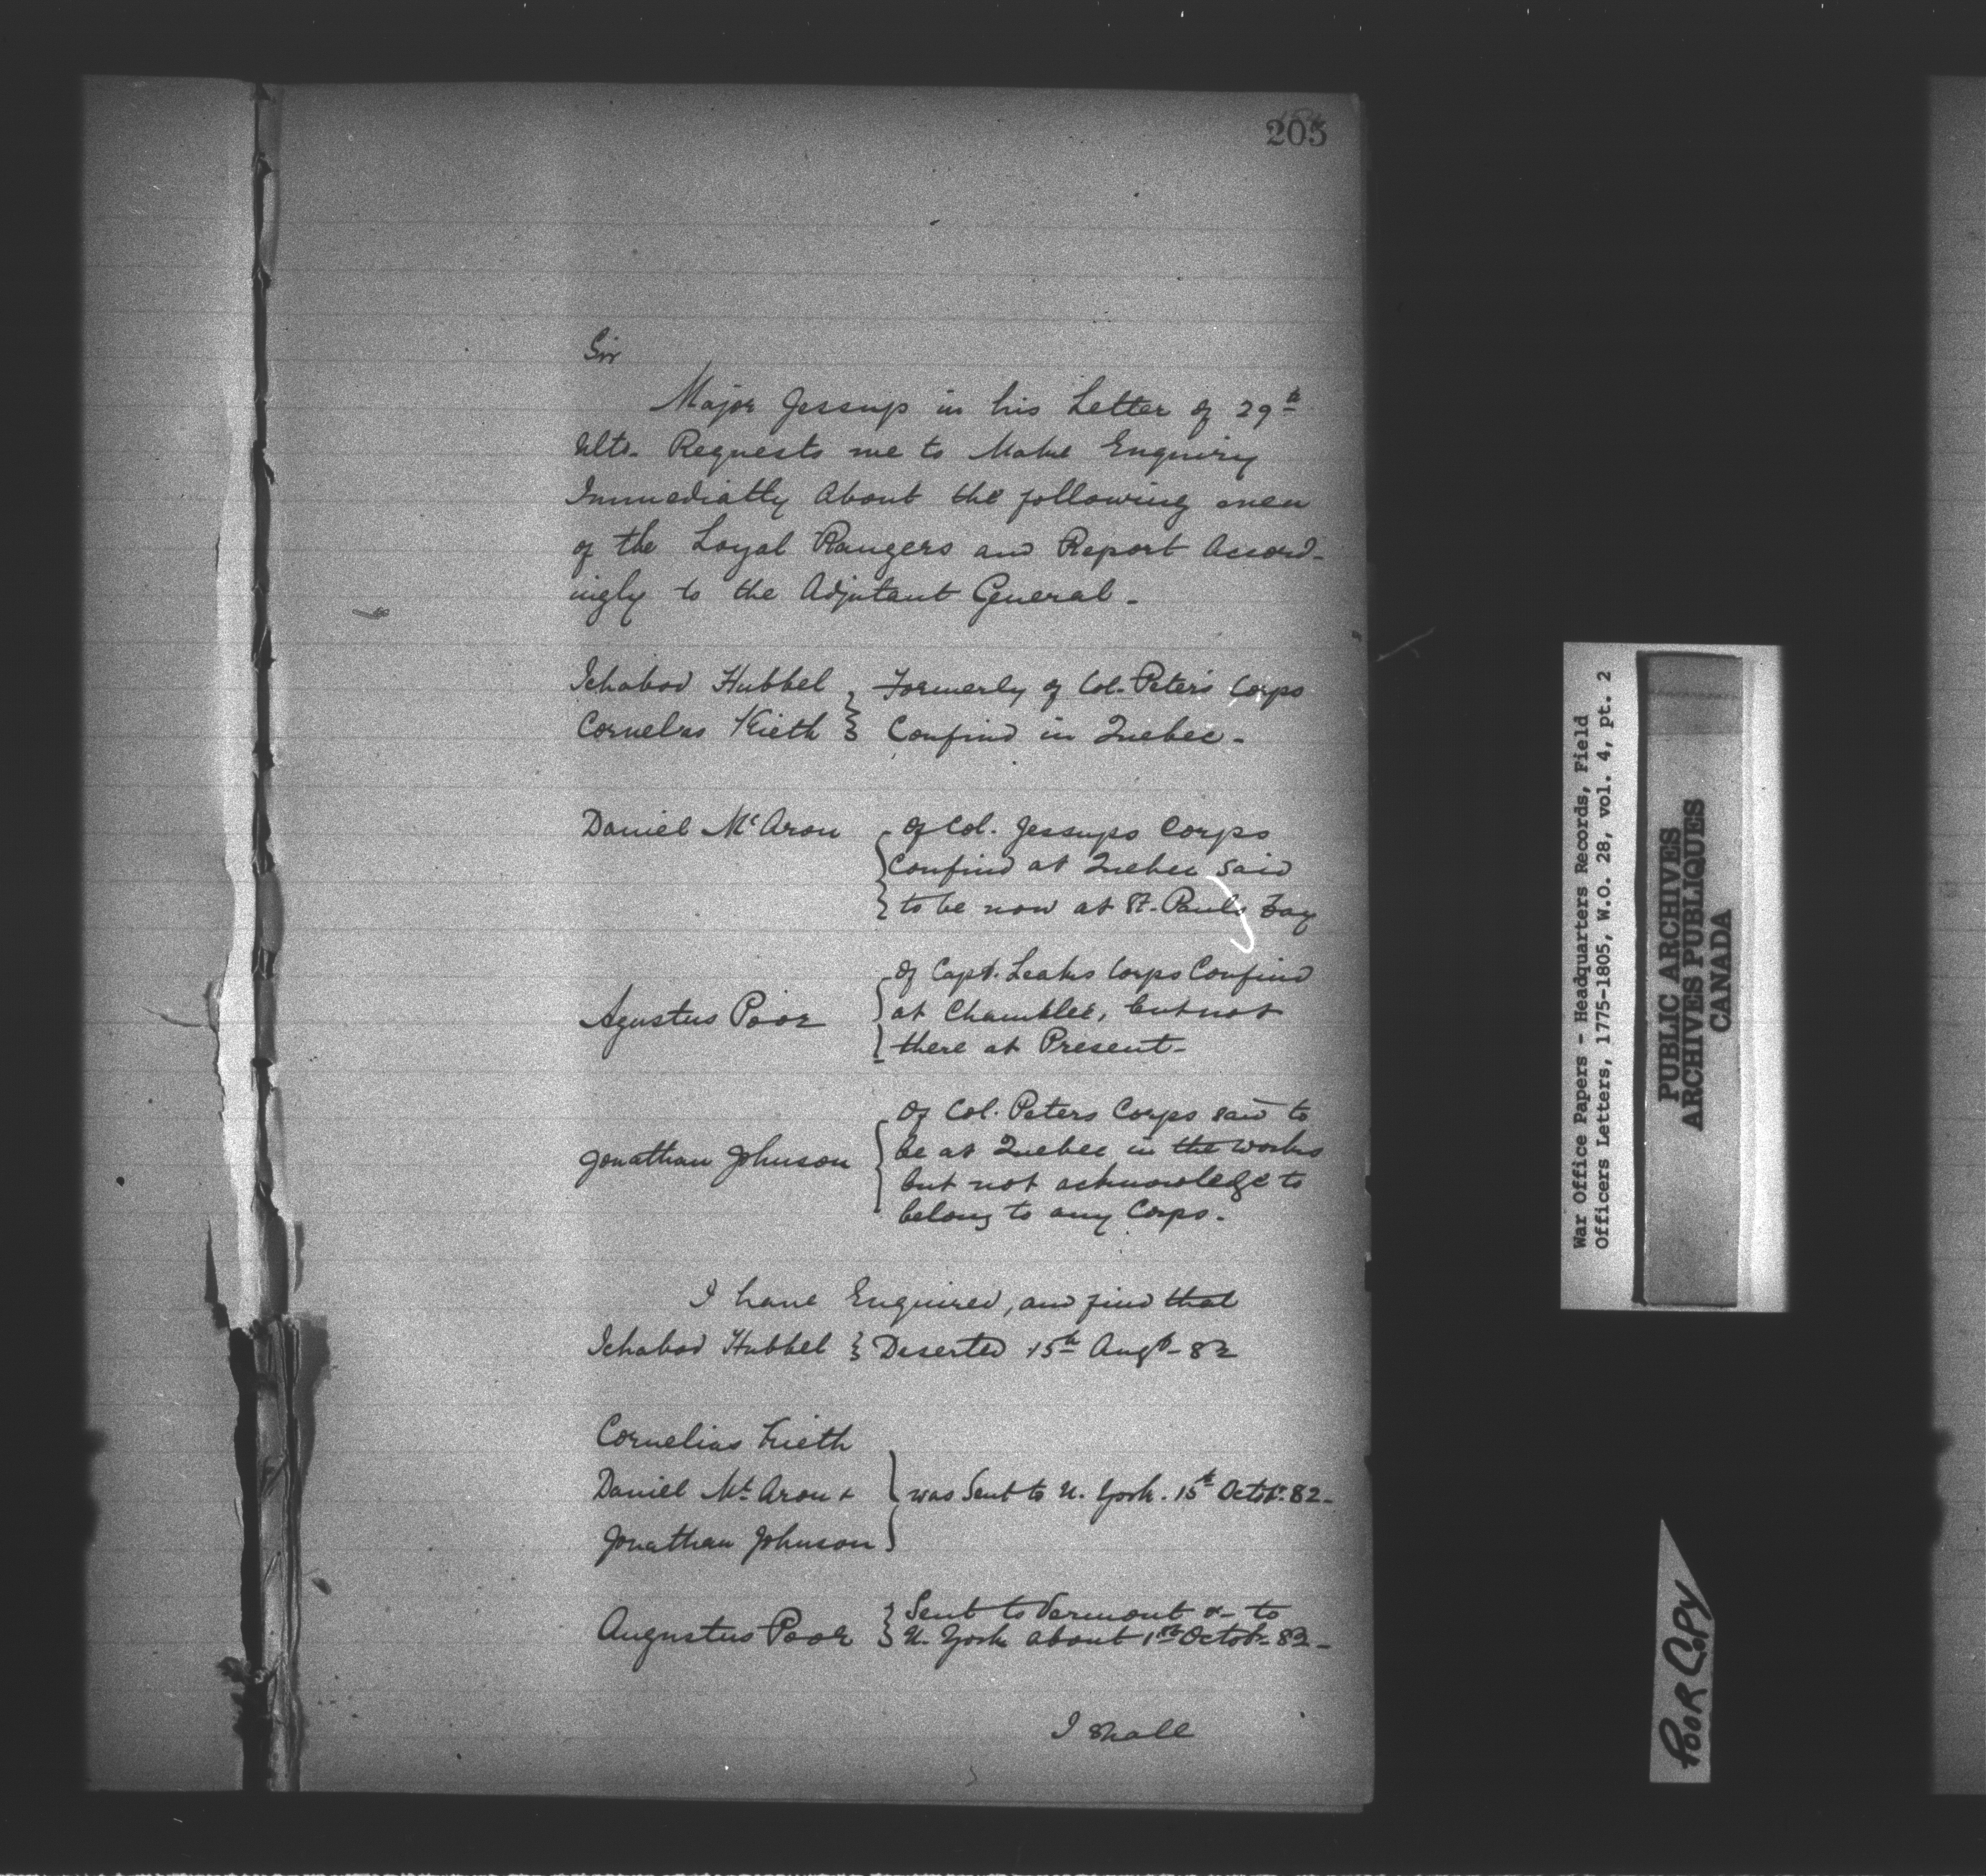 205
Sir
Major Jessup in his Letter of 29th
Ulto. Requests me to Make Enquiry
Immediatly About the following men
of the Loyal Rangers and Report Accord-
ingly to the Adjutant General -
Ichabod Hubbel } Formerly of Col. Peters Corps
Cornelius Kieth } Confind in Quebec -
Daniel McAron { Of Col. Jessups Corps
Confind at Quebec said
to be now at St. Pauls Bay
Agustus Poor { Of Capt. Leaks Corps Confind
at Chamblee, but not
there at Present -
Jonathan Johnson { Of Col. Peters Corps said to
be at Quebec in the works
but not acknowledge to
belong to any Corps.
I have Enquired, and find that
Ichabod Hubbel } Deserted 15th Augt - 82
Cornelius Kieth
Daniel Mc Aron + } was Sent to N. York. 15th Octobr. 82 -
Jonathan Johnson
Augustus Poor } Sent to Vermont & to
N. York about 1st Octobr. 82 -
I shall
War Office Papers - Headquarters Records, Field
Officers Letters, 1775-1805, W.O. 28, vol. 4, pt. 2
PUBLIC ARCHIVES
ARCHIVES PUBLIQUES
CANADA
POOR COPY